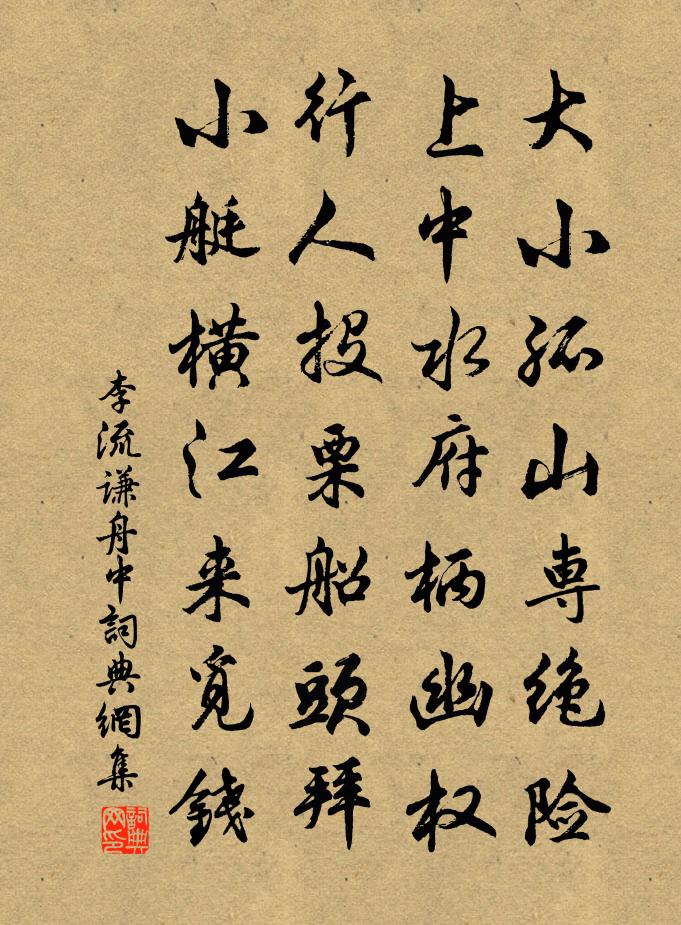 大小孤山専绝险
上中水府柄幽权
行人投栗船頭拜
小艇横江来觅錢
李流谦舟中詞典網集
詞典网印